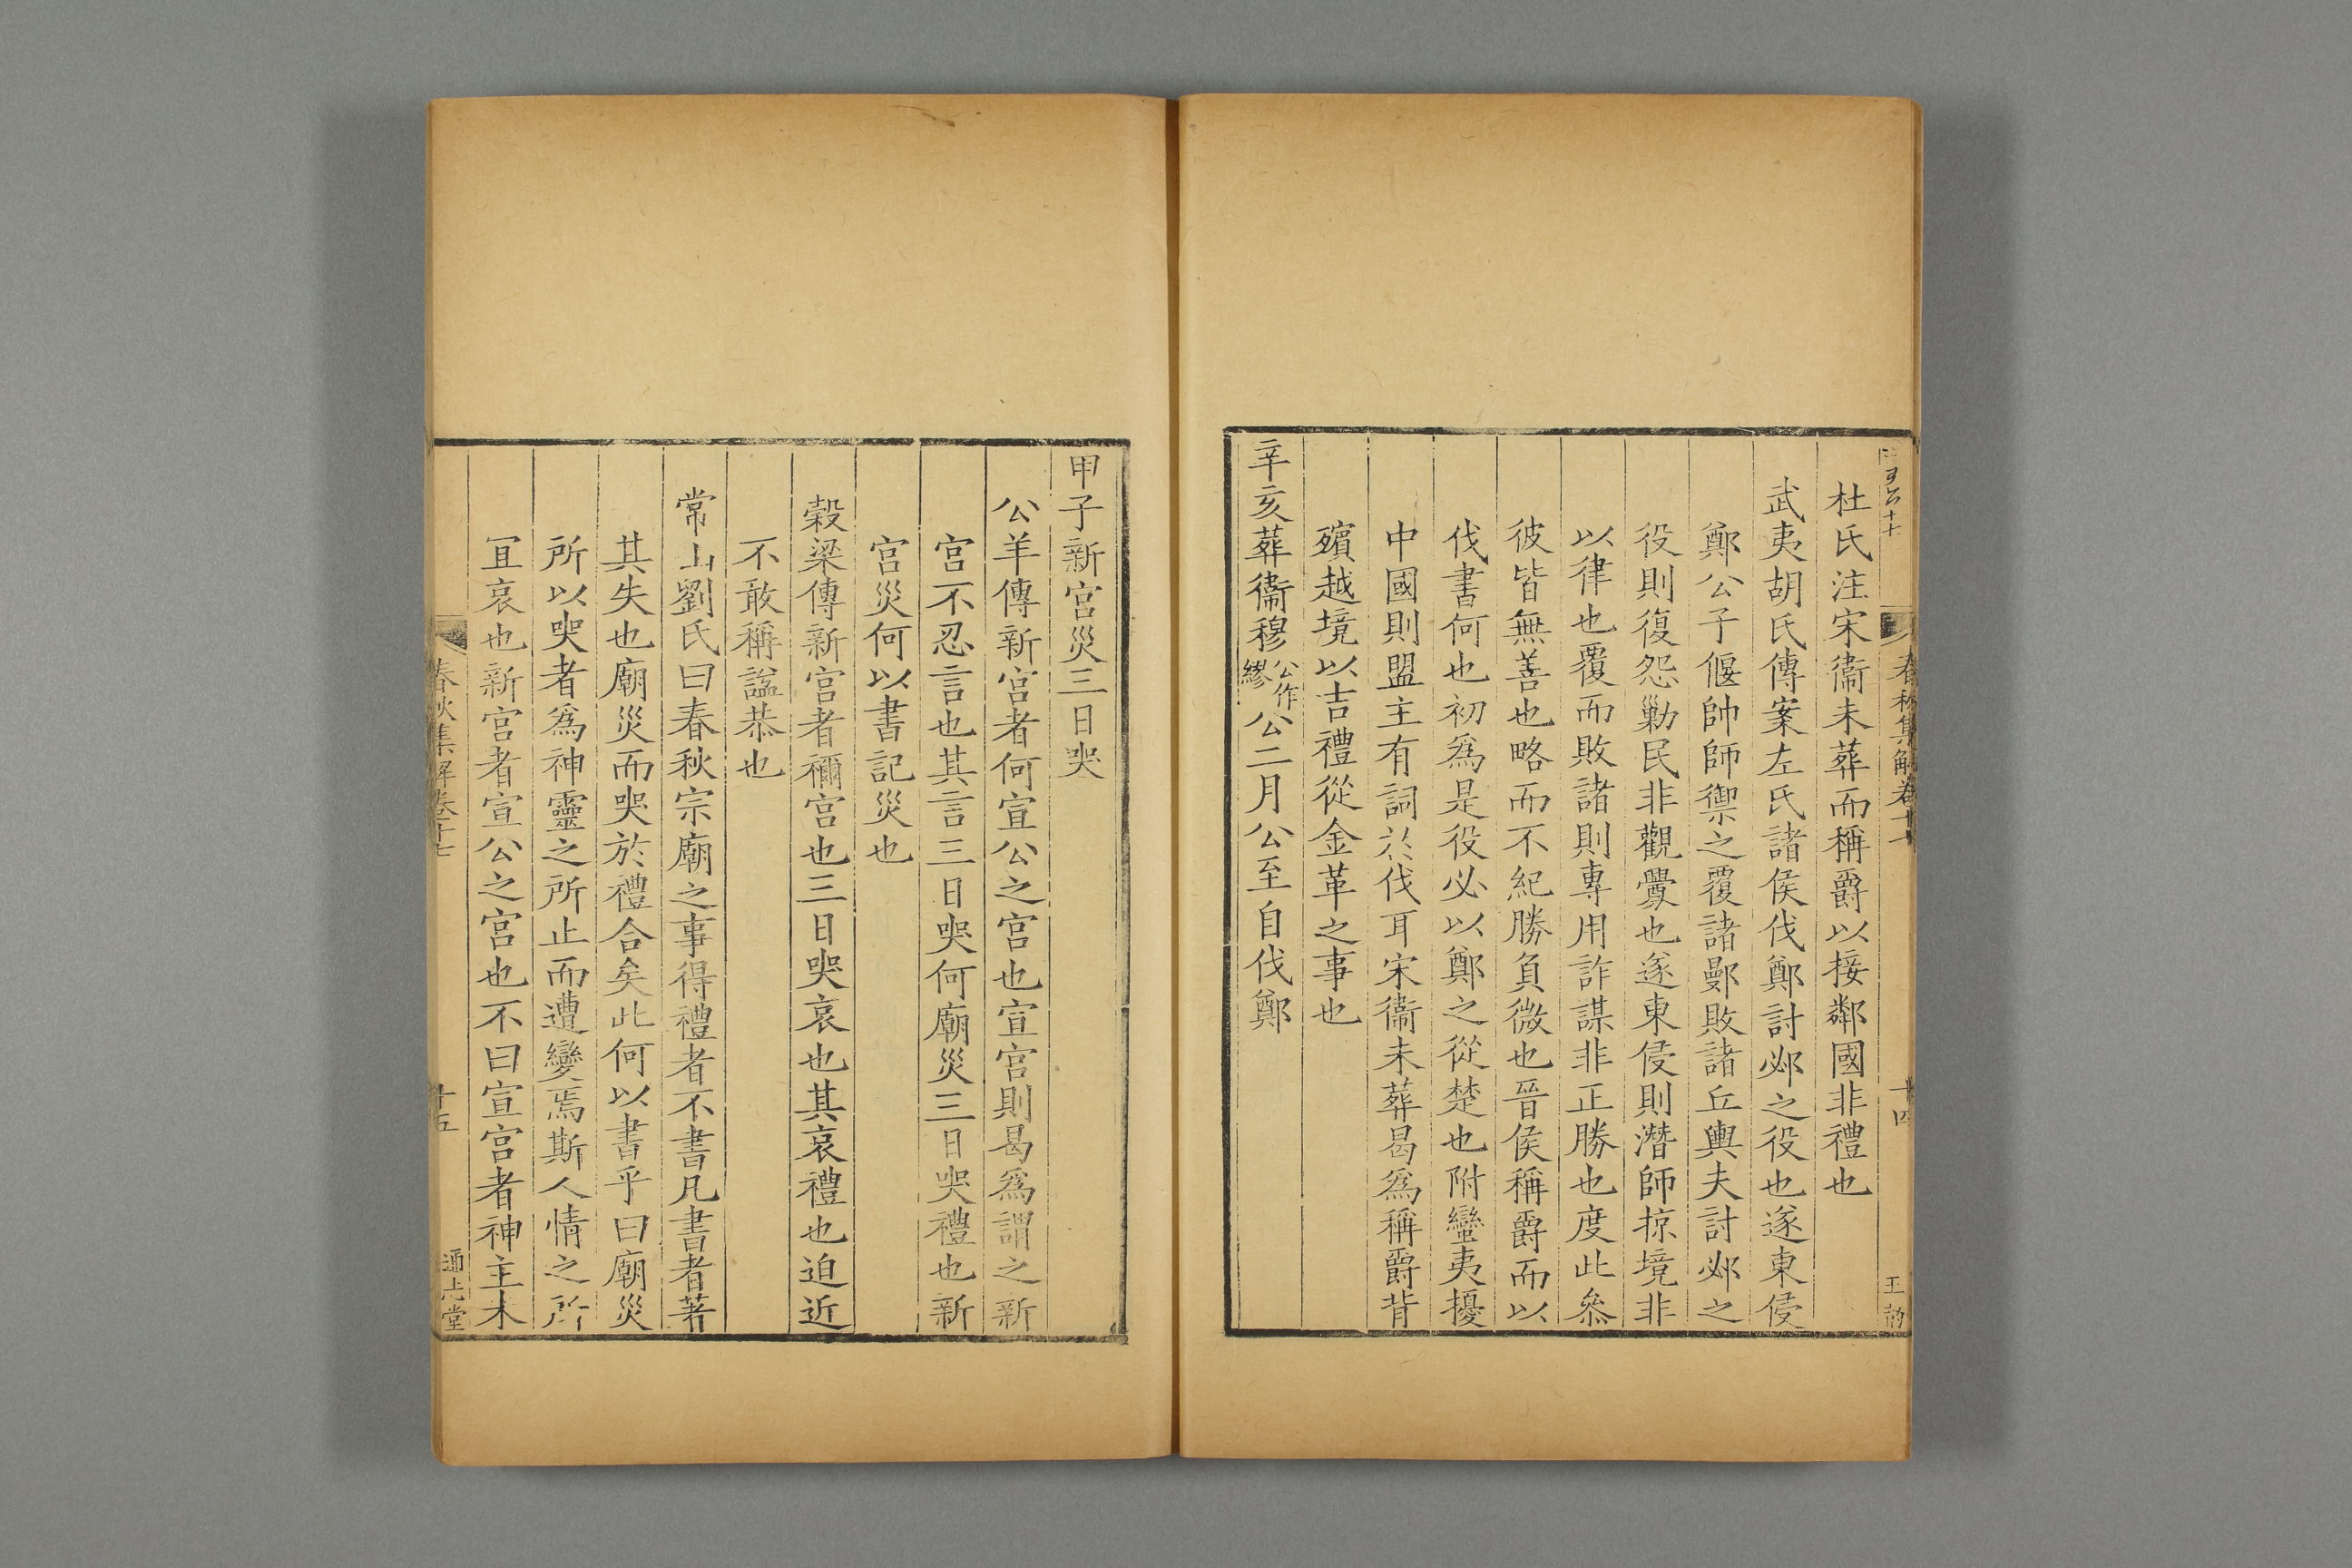 春秋集解卷十七
十四
杜氏注宋衞未葬而稱爵以接鄰國非禮也
武夷胡氏傳案左氏諸侯伐鄭討邲之役也遂東侵
鄭公子偃帥師禦之覆諸鄤敗諸丘輿夫討邲之
役則復怨勦民非觀釁也遂東侵則潛師掠境非
以律也覆而敗諸則專用詐謀非正勝也度此叅
彼皆無善也略而不紀勝負微也晉侯稱爵而以
伐書何也初爲是役必以鄭之從楚也附蠻夷擾
中國則盟主有詞於伐耳宋衞未葬曷爲稱爵背
殯越境以吉禮從金革之事也
辛亥葬衞穆公作繆公二月公至自伐鄭
甲子新宮災三日哭
公羊傳新宮者何宣公之宮也宣宮則曷爲謂之新
宮不忍言也其言三日哭何廟災三日哭禮也新
宮災何以書記災也
穀梁傳新宮者禰宮也三日哭哀也其哀禮也迫近
不敢稱諡恭也
常山劉氏曰春秋宗廟之事得禮者不書凡書者著
其失也廟災而哭於禮合矣此何以書乎曰廟災
所以哭者爲神靈之所止而遭變焉斯人情之所
宜哀也新宮者宣公之宮也不曰宣宮者神主未
春秋集解卷十七
十五
通志堂